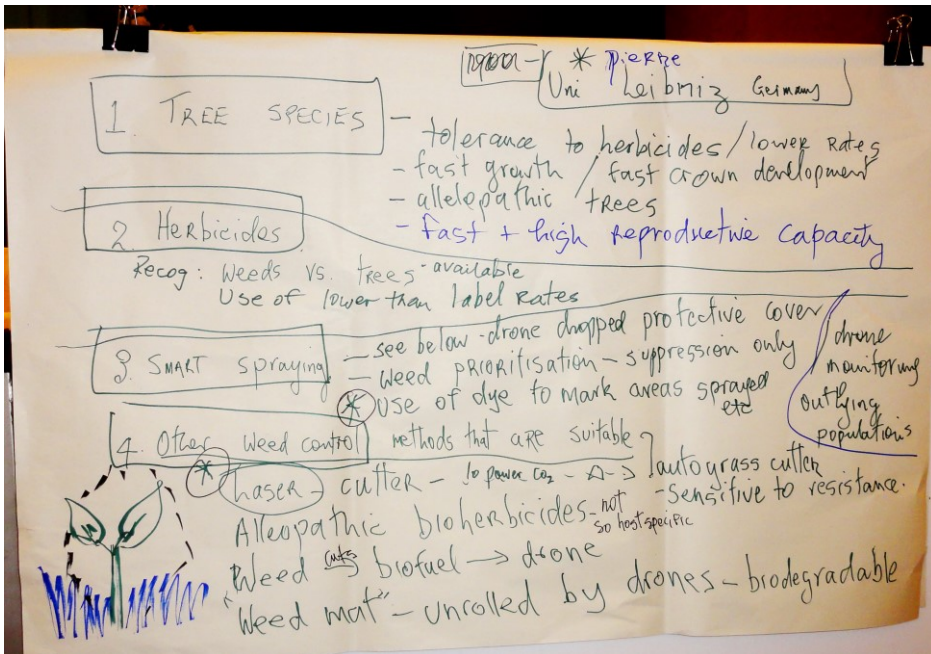 * Pierre
Uni Leibniz Germany
1. TREE SPECIES
- tolerance to herbicides / lower rates
- fast growth / fast crown development
- allelopathic trees
- fast + high reproductive capacity
2. Herbicides
Recog: weeds vs. trees - available
Use of lower than label rates
3. SMART spraying
- see below - drone dropped protective cover
- weed prioritisation - suppression only
* use of dye to mark areas sprayed etc
drone
monitoring
outlying
populations
4. Other weed control methods that are suitable
* Laser - cutter - lo power CO2 - → autograss cutter
- Sensitive to resistance.
Alleopathic bioherbicides - not so host specific
Weed → biofuel → drone
"Weed mat" - unrolled by drones - biodegradable